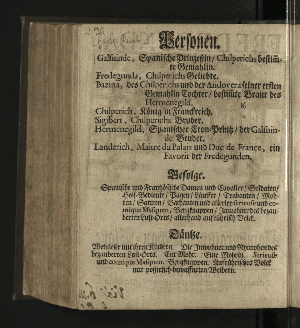 Personen.
Galsuinde, Spanische Prinzeßin, Chilperichs bestim-
te Gemahlin.
Fredegunda, Chilperichs Geliebte.
Bazina, des Chilperichs und der Andovera seiner ersten
Gemahlin Tochter, bestimte Braut des
Hermenegild.
Chilperich, König in Franckreich.
Sigibert, Chilperichs Bruder.
Hermenegild, Spanischer Cron-Printz, der Galsuin-
de Bruder.
Landerich, Maitre du Palais und Duc de France, ein
Favorit der Fredegunden.
Gefolge.
Spanische und Frantzösische Damen und Cavallier, Soldaten,
Hof-Bediente, Pagen, Trabanten, Moh-
ren, Satyren, und allerley serieuse und co-
mique Masquen, Inwohner des bezau-
berten Lust-Orts, allerhand Volck.
Däntze.
mit ihren Kindern. Die Inwohner und des
bezauberten Lust-Orts. Ein Mohr. Eine Mohrin. Serieuse
und comique Masquen. Volck
mit possierlich-bewaffneten Weibern.